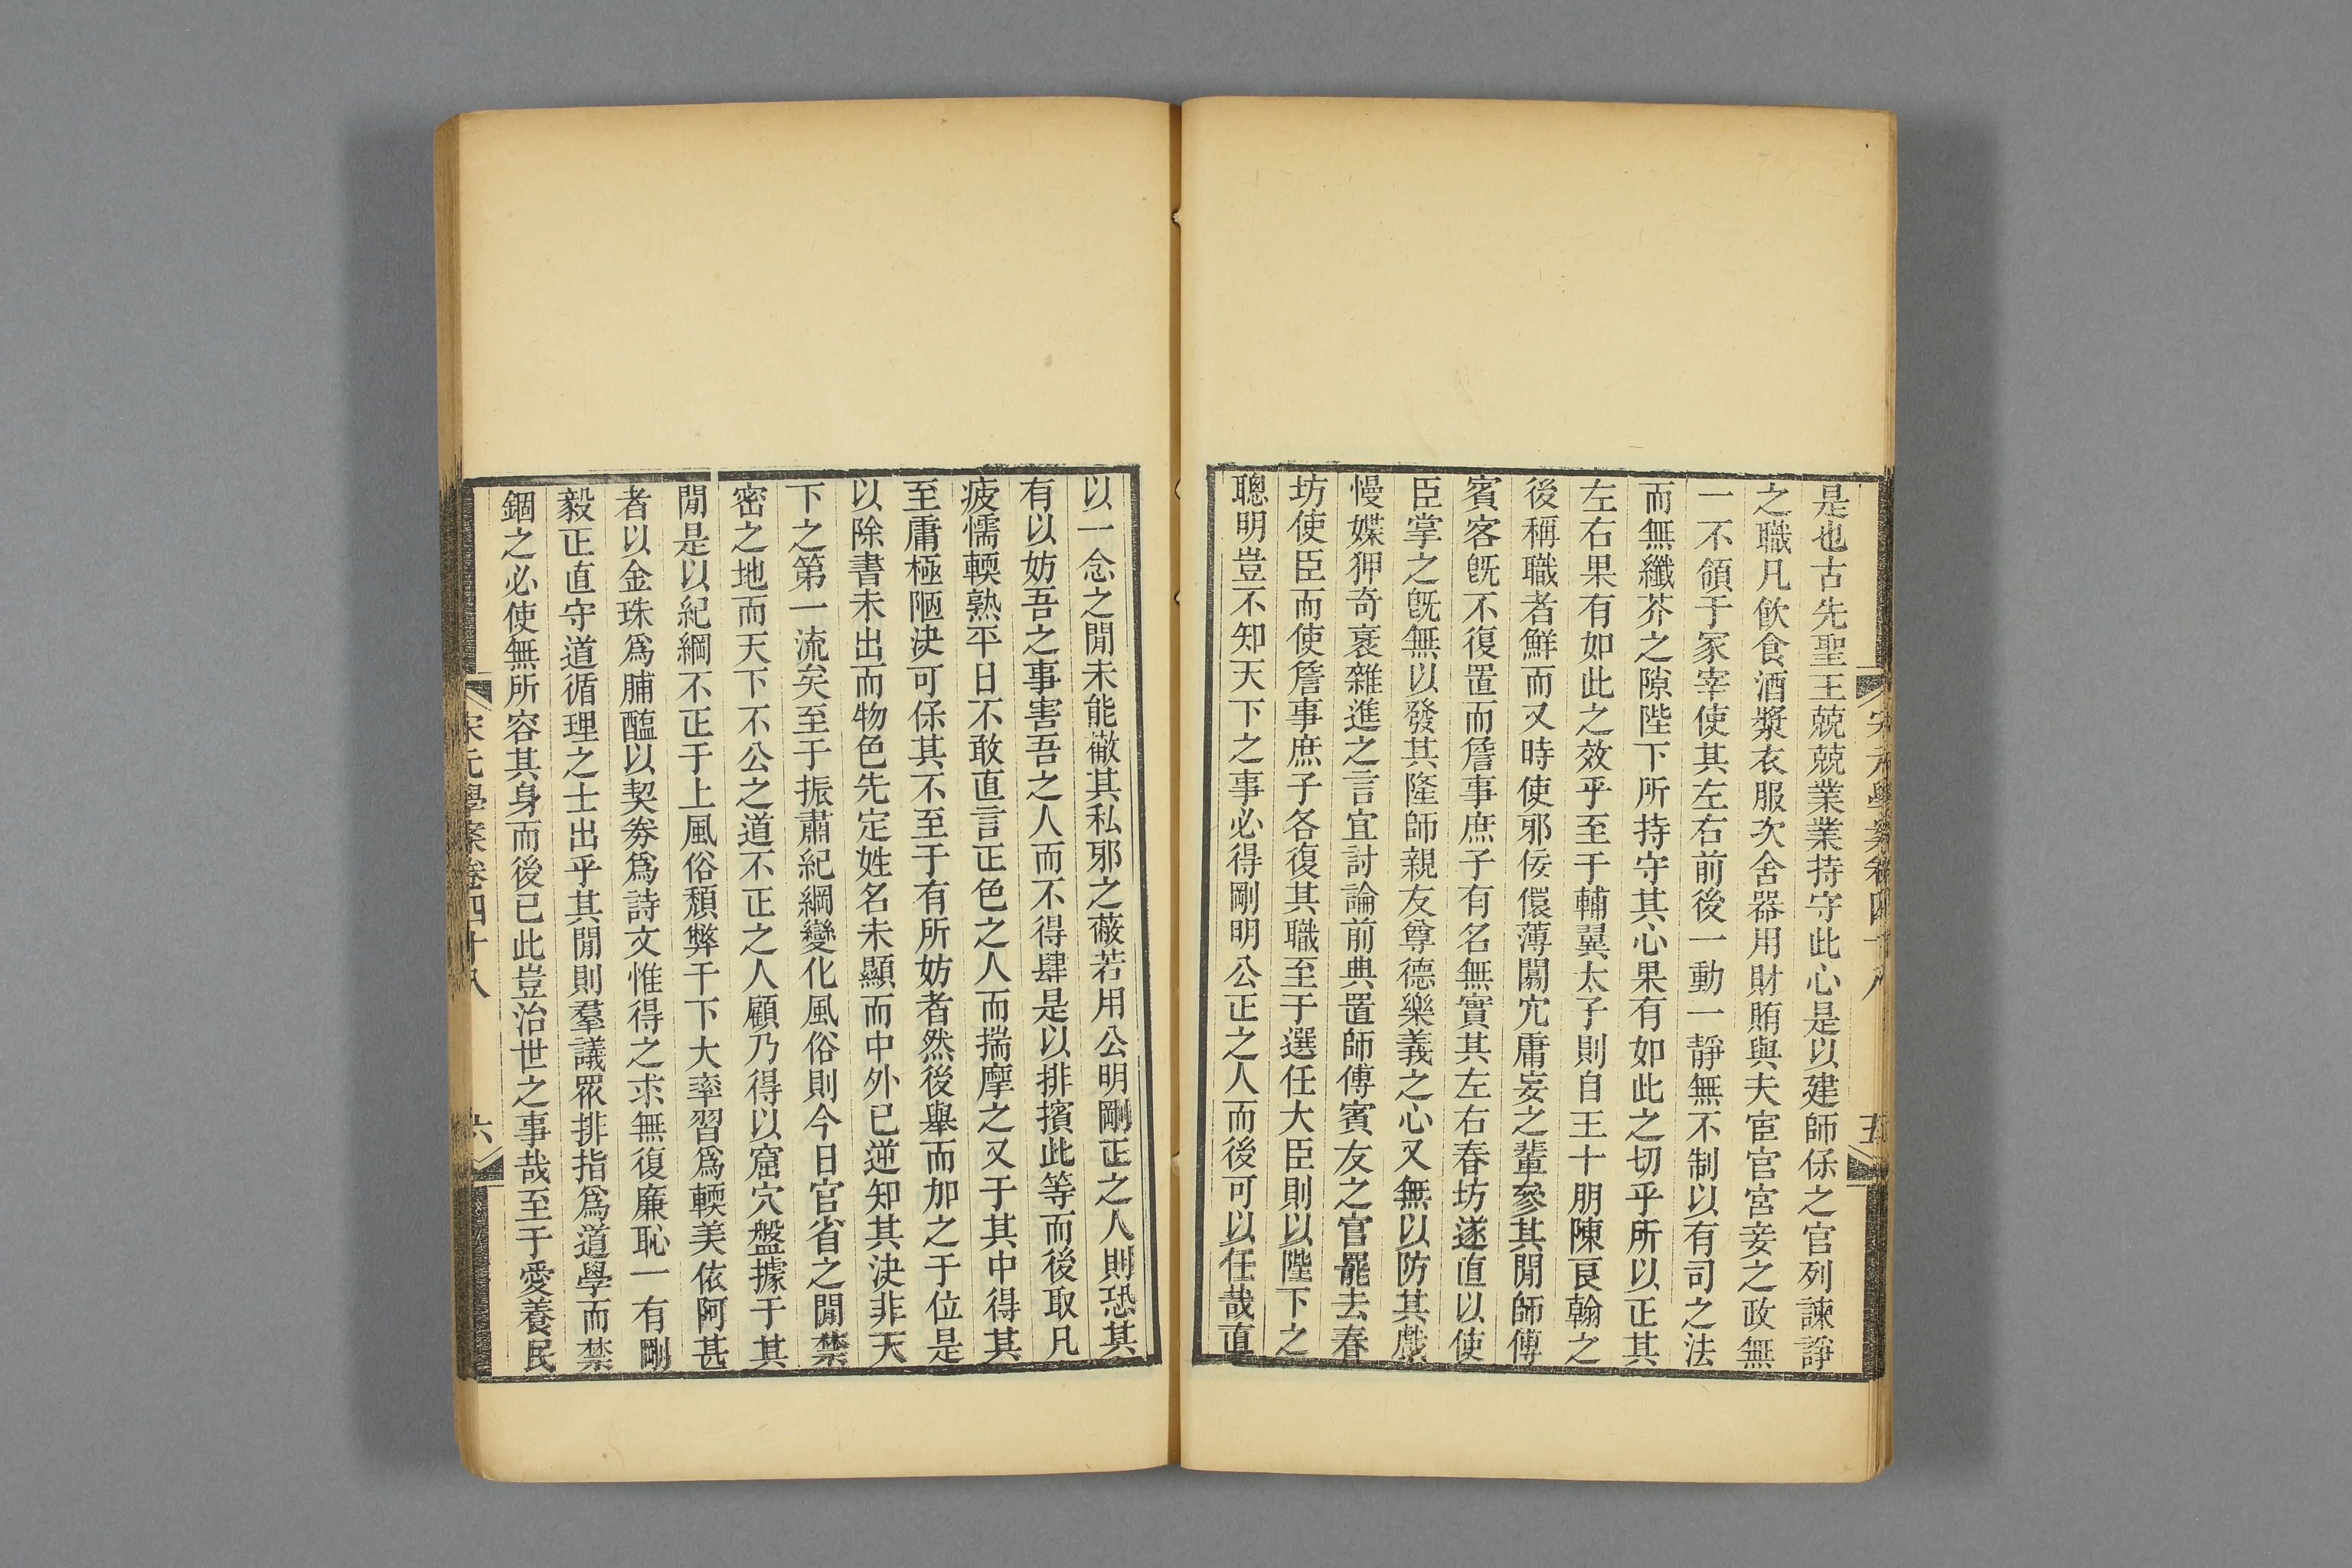 宋元學案卷四十八
五
是也古先聖王兢兢業業持守此心是以建師保之官列諫諍
之職凡飲食酒漿衣服次舍器用財賄與夫宦官宮妾之政無
一不領于冢宰使其左右前後一動一靜無不制以有司之法
而無纖芥之隙陛下所持守其心果有如此之切乎所以正其
左右果有如此之效乎至于輔翼太子則自王十朋陳良翰之
後稱職者鮮而又時使邪佞儇薄闒宂庸妄之輩參其閒師傅
賓客旣不復置而詹事庶子有名無實其左右春坊遂直以使
臣掌之旣無以發其隆師親友尊德樂義之心又無以防其戲
慢媟狎奇衺雜進之言宜討論前典置師傅賓友之官罷去春
坊使臣而使詹事庶子各復其職至于選任大臣則以陛下之
聰明豈不知天下之事必得剛明公正之人而後可以任哉直
以一念之閒未能徹其私邪之蔽若用公明剛正之人則恐其
有以妨吾之事害吾之人而不得肆是以排擯此等而後取凡
疲懦輭熟平日不敢直言正色之人而揣摩之又于其中得其
至庸極陋決可保其不至于有所妨者然後舉而加之于位是
以除書未出而物色先定姓名未顯而中外已逆知其決非天
下之第一流矣至于振肅紀綱變化風俗則今日官省之閒禁
密之地而天下不公之道不正之人顧乃得以窟穴盤據于其
閒是以紀綱不正于上風俗頹弊于下大率習爲輭美依阿甚
者以金珠爲脯醢以契券爲詩文惟得之求無復廉恥一有剛
毅正直守道循理之士出乎其閒則羣議眾排指爲道學而禁
錮之必使無所容其身而後已此豈治世之事哉至于愛養民
宋元學案卷四十八
六